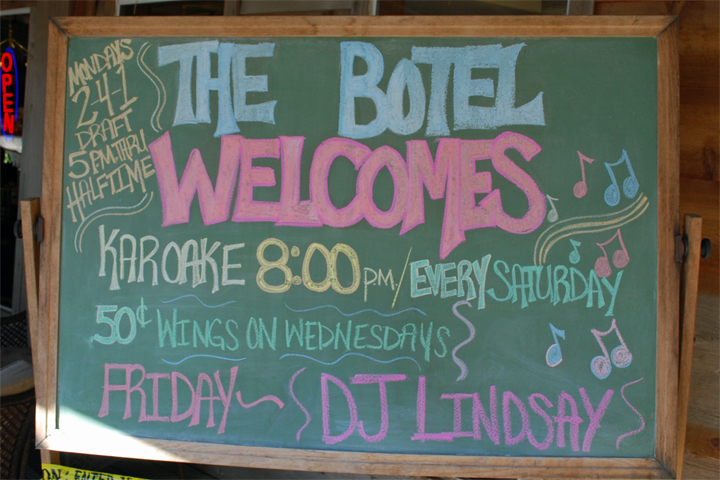 OPEN
MONDAYS
2-4-1
DRAFT
5 P.M. THRU
HALFTIME
THE BOTEL
WELCOMES
KAROAKE 8:00 P.M./EVERY SATURDAY
50¢ WINGS ON WEDNESDAYS
FRIDAY~ DJ LINDSAY